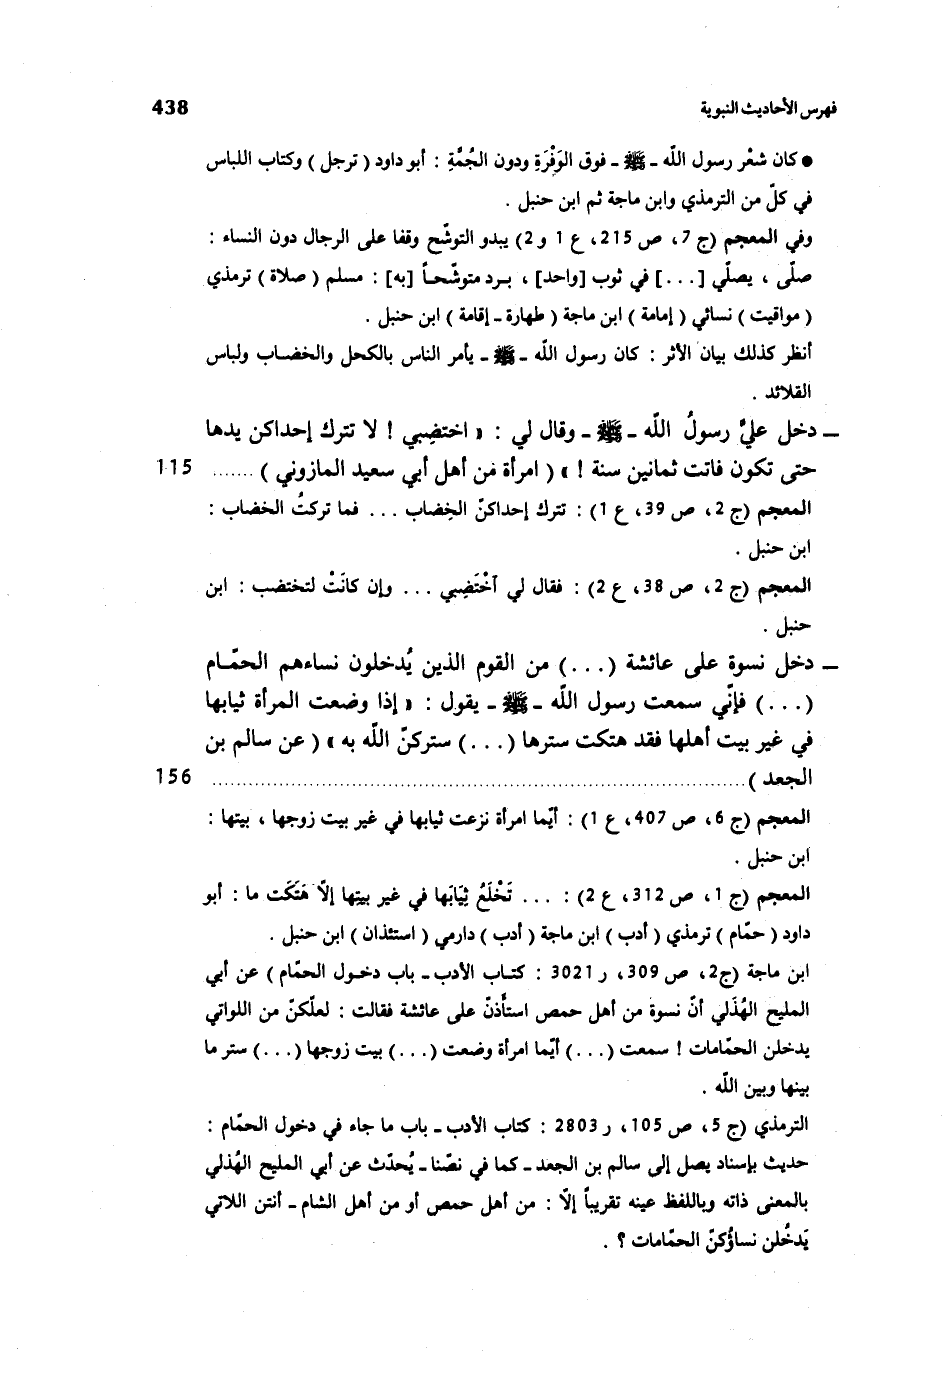 فهرس الأحاديث النبوية 438
● كان شعْر رسول اللّه ـ ﷺ ـ فوق الوَفْرَةِ ودون الجُمَّةِ : أبو داود ( ترجل ) وكتاب اللباس
في كلّ من الترمذي وابن ماجة ثم ابن حنبل .
وفي المعجم (ج 7، ص 215، ع 1 و 2) يبدو التوشّح وقفا على الرجال دون النساء :
صلّى ، يصلّي [...] في ثوب [واحد] ، بـرد متوشّحـاً [به] : مسلم ( صلاة ) ترمذي
( مواقيت ) نسائي ( إمامة ) ابن ماجة ( طهارة ـ إقامة ) ابن حنبل .
أنظر كذلك بيان الأثر : كان رسول اللّه ـ ﷺ ـ يأمر الناس بالكحل والخضـاب ولباس
القلائد .
ـ دخل عليَّ رسولُ اللّه ـ ﷺ ـ وقال لي : « اختضِبي ! لا تترك إحداكن يدها
حتى تكون فاتت ثمانين سنة ! » ( امرأة من أهل أبي سعيد المازوني ) ....... 115
المعجم (ج 2، ص 39، ع 1) : تترك إحداكنّ الخِضاب ... فما تركتُ الخضاب :
ابن حنبل .
المعجم (ج 2، ص 38، ع 2) : فقال لي آخْتَضِبي ... وإن كانَتْ لتختضب : ابن
حنبل .
ـ دخل نسوة على عائشة (...) من القوم الذين يُدخلون نساءهم الحمّـام
(...) فإنّي سمعت رسول اللّه ـ ﷺ ـ يقول : « إذا وضعت المرأة ثيابها
في غير بيت أهلها فقد هتكت سترها (...) ستركنّ اللّه به » ( عن سالم بن
الجعد ) ....................................................... 156
المعجم (ج 6، ص 407، ع 1) : أيّما امرأة نزعت ثيابها في غير بيت زوجها ، بيتها :
ابن حنبل .
المعجم (ج 1، ص 312، ع 2) : ... تَخْلَعُ ثِيَابَها في غير بيتها إلاّ هَتَكَت ما : أبو
داود ( حمّام ) ترمذي ( أدب ) ابن ماجة ( أدب ) دارمي ( استئذان ) ابن حنبل .
ابن ماجة (ج2، ص 309، ر 3021 : كتـاب الأدب ـ باب دخـول الحمّام ) عن أبي
المليح الهُذَلي أنّ نسوة من أهل حمص استأذنّ على عائشة فقالت : لعلّكنّ من اللواتي
يدخلن الحمّامات ! سمعت (...) أيّما امرأة وضعت (...) بيت زوجها (...) ستر ما
بينها وبين اللّه .
الترمذي (ج 5، ص 105، ر 2803 : كتاب الأدب ـ باب ما جاء في دخول الحمّام :
حديث بإسناد يصل إلى سالم بن الجعد ـ كما في نصّنا ـ يُحدّث عن أبي المليح الهُذلي
بالمعنى ذاته وباللفظ عينه تقريباً إلاّ : من أهل حمص أو من أهل الشام ـ أنتن اللاتي
يَدخُلن نساؤُكنّ الحمّامات ؟ .